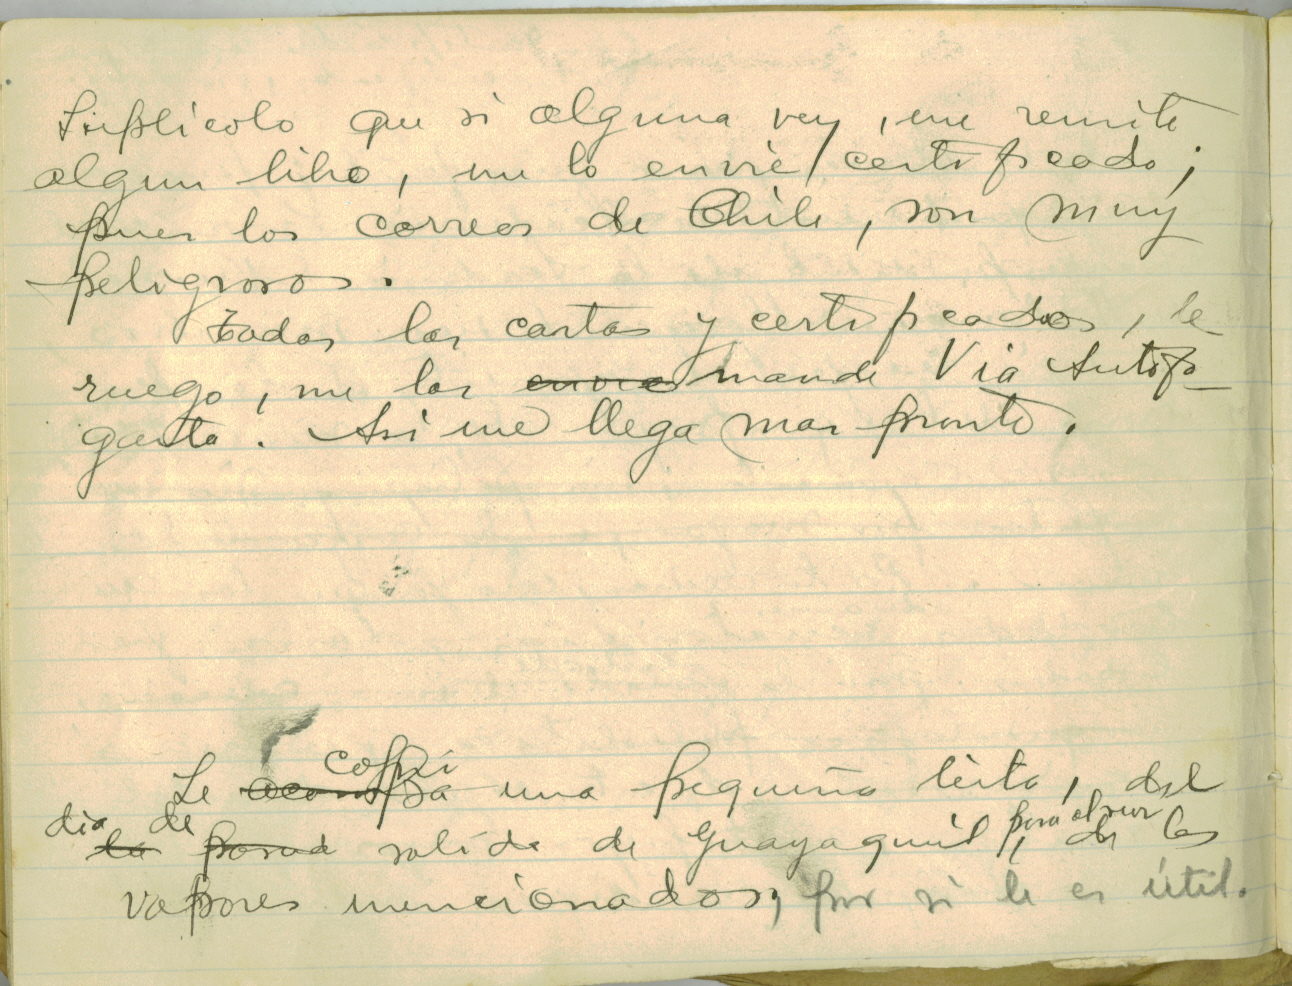 Suplícolo que si alguna vez, me remite
algun libro, me lo envie certificado;
pues los correos de Chile, son muy
peligrosos.
Todas las cartas y certificados, le
ruego, me las envie mande Via Antofa-
gasta. Asi me llega mas pronto.
copié
Le una pequeña lista, del
dia de para el sur
la salida de Guayaquil, de los
vapores mencionados, por si le es útil.